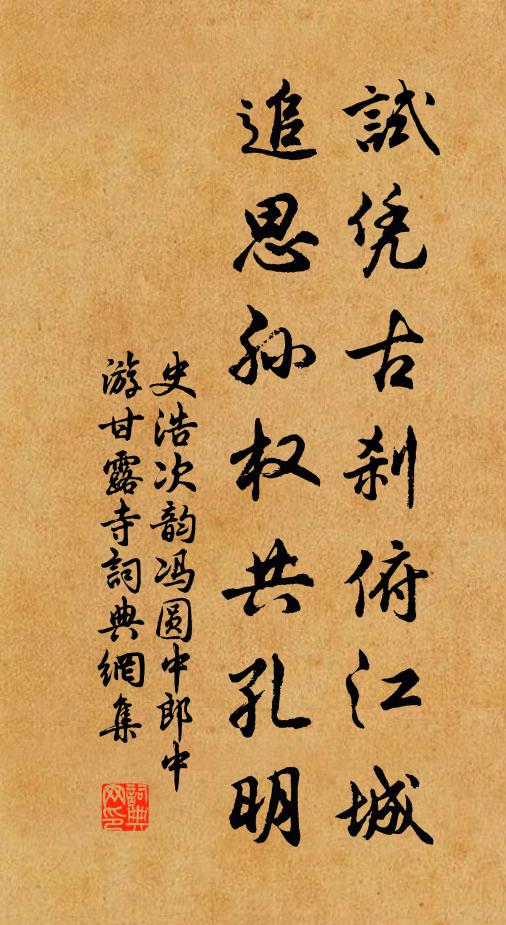 試凭古刹俯江城
追思孙权共孔明
史浩次韵冯圆中郎中
游甘露寺詞典網集
詞典
网印